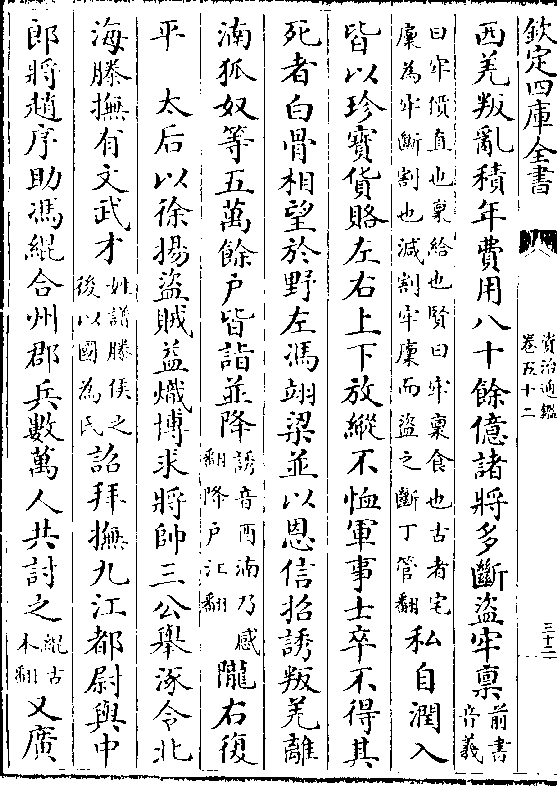 欽定四庫全書
資治通鑑
卷五十二
三十二
西羌叛亂積年費用八十餘億諸將多斷盜牢禀前書音義
曰牢價直也禀給也賢曰牢禀食也古者宅
廩為牢斷割也減割牢廩而盜之斷丁管翻私自潤入
皆以珍寶貨賂左右上下放縱不恤軍事士卒不得其
死者白骨相望於野左馮翊梁並以恩信招誘叛羌離
湳狐奴等五萬餘戶皆詣並降誘音酉湳乃感翻降戶江翻隴右復
平　太后以徐揚盜賊益熾博求將帥三公舉涿令北
海滕撫有文武才姓譜滕侯之後以國為氏詔拜撫九江都尉與中
郎將趙序助馮緄合州郡兵數萬人共討之緄古本翻又廣